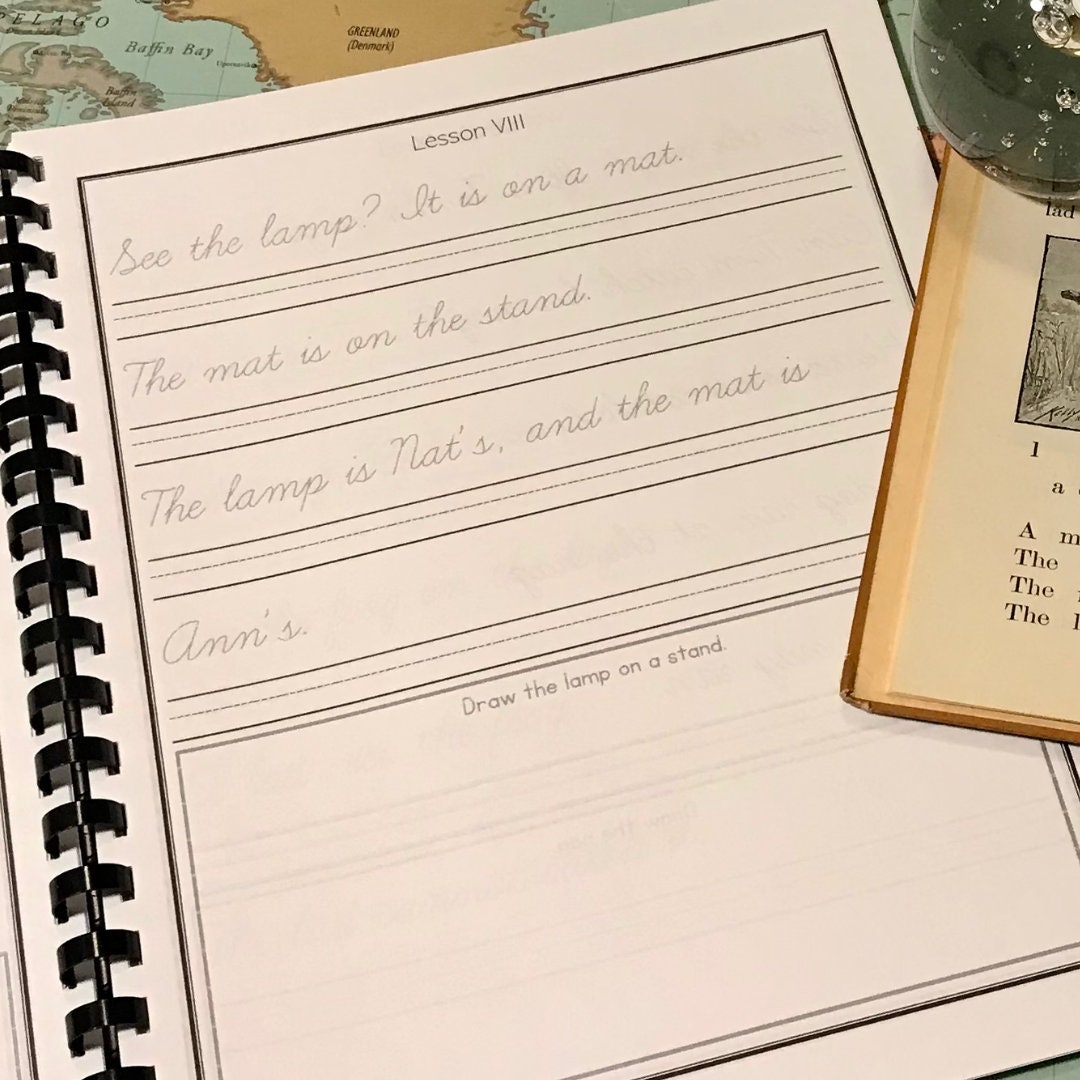 PELAGO
Baffin Bay
GREENLAND
(Denmark)
Baffin
Island
Lesson VIII
See the lamp? It is on a mat.
The mat is on the stand.
The lamp is Nat's, and the mat is
Ann's.
Draw the lamp on a stand.
lad
1
a
A m
The
The
The l